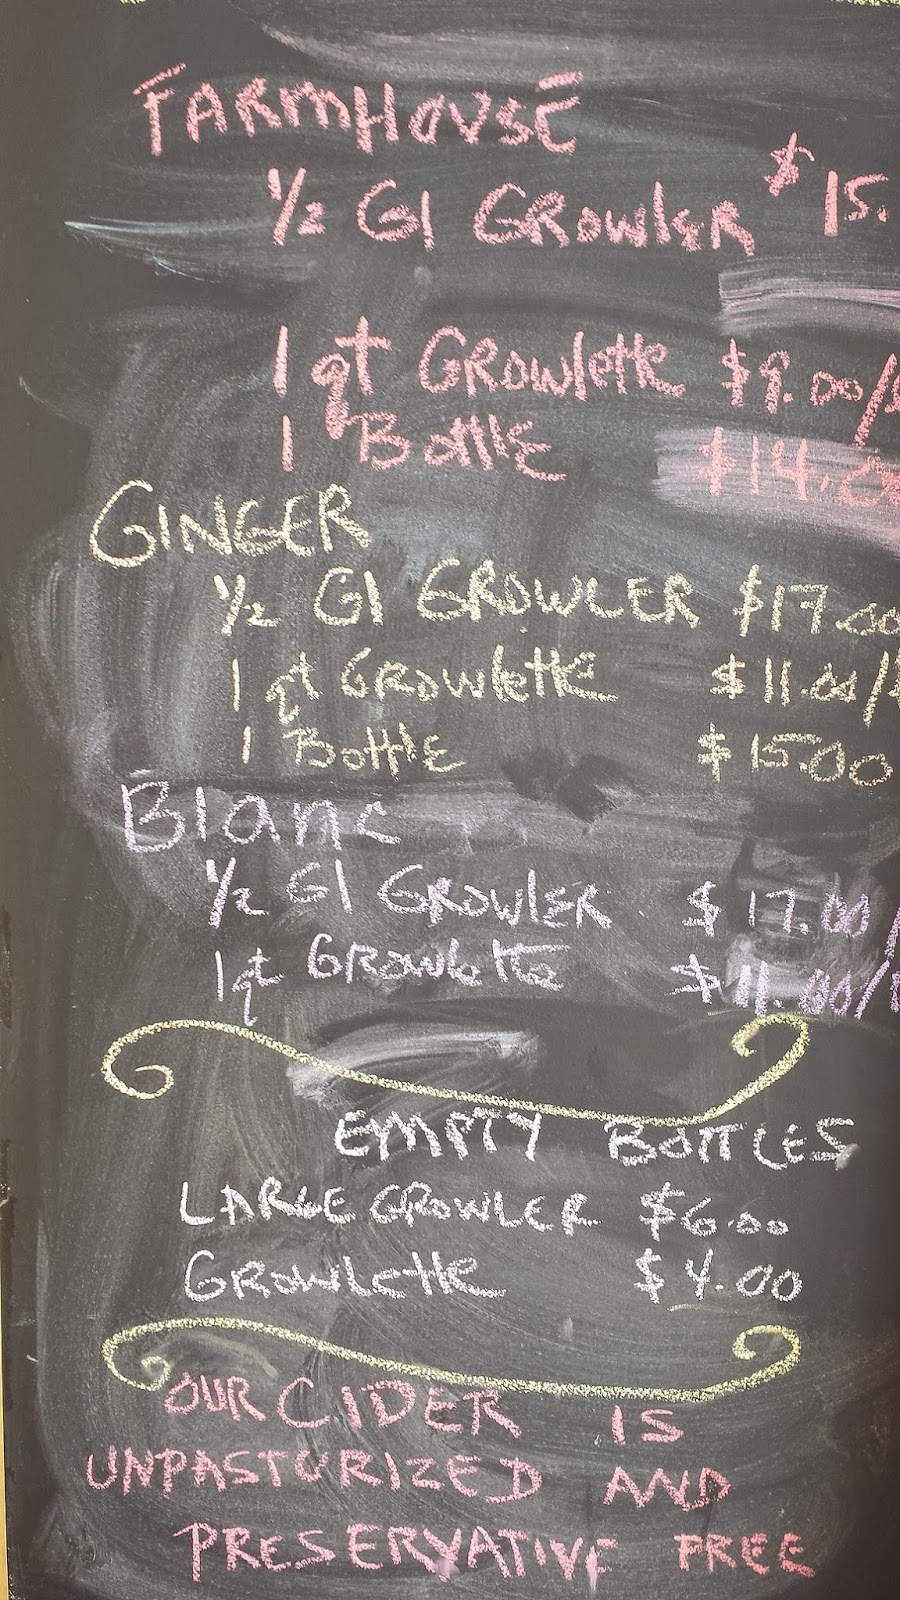 FARMHOUSE
1/2 Gl GROWLER $15.
1 qt GROWlette $9.00/
1 Bottle $14.0
GINGER
1/2 Gl GROWLER $17.00
1 qt GROWlette $11.00/
1 Bottle $15.00
Blanc
1/2 Gl GROWlER $17.00/
1qt GROWlette $11.00/
EMPTY BOTTLES
LARGE GROWLER $6.00
GROWLette $4.00
OUR CIDER IS
UNPASTURIZED AND
PRESERVATIVE FREE